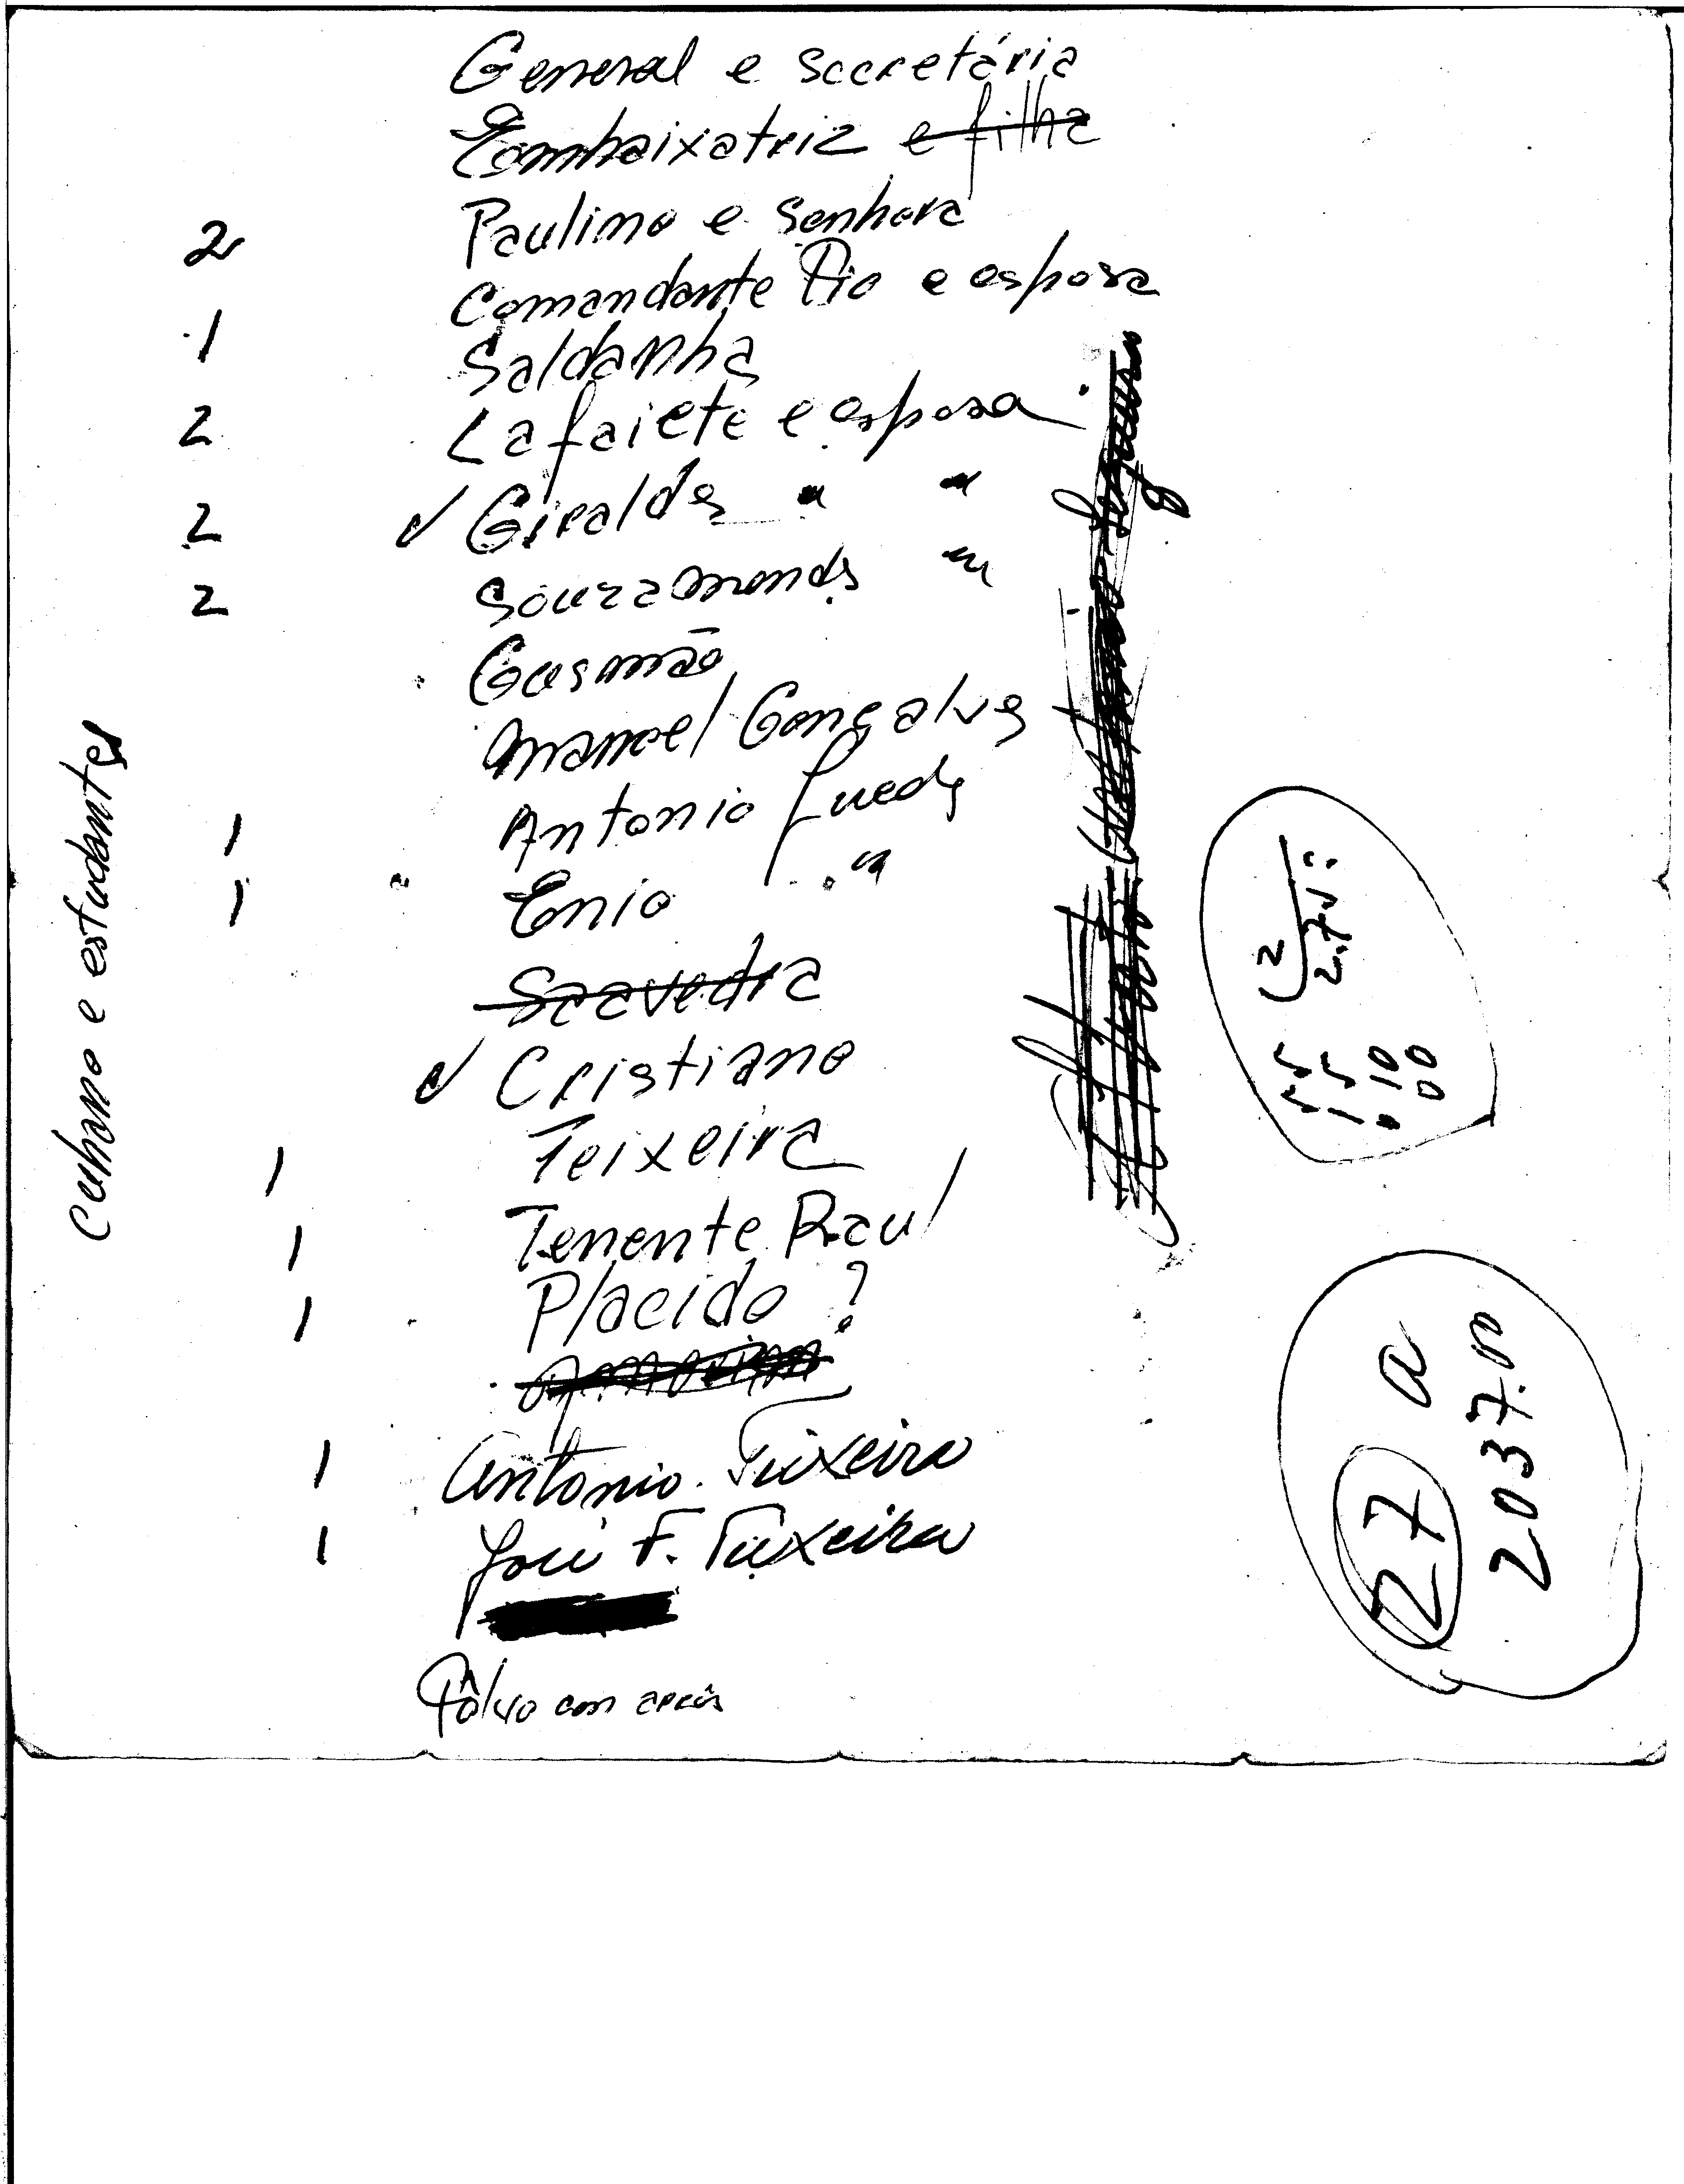 General e secretária
Embaixatriz e filha
2 Paulino e Senhora
Comandante Pio e esposa
1 Saldanha
2 Lafaiete e esposa
2 ✓ Giraldes " "
2 Souza mendes "
Gusmão
Manoel Gonçalves
1 Antonio Guedes
1 Enio "
Saavedra
✓ Cristiano
1 Teixeira
1 Tenente Raul
1 Placido ?
Amorim
1 Antonio Teixeira
1 José F. Teixeira
Pôlvo com
Cubano e estudantes
27 a
2037.00